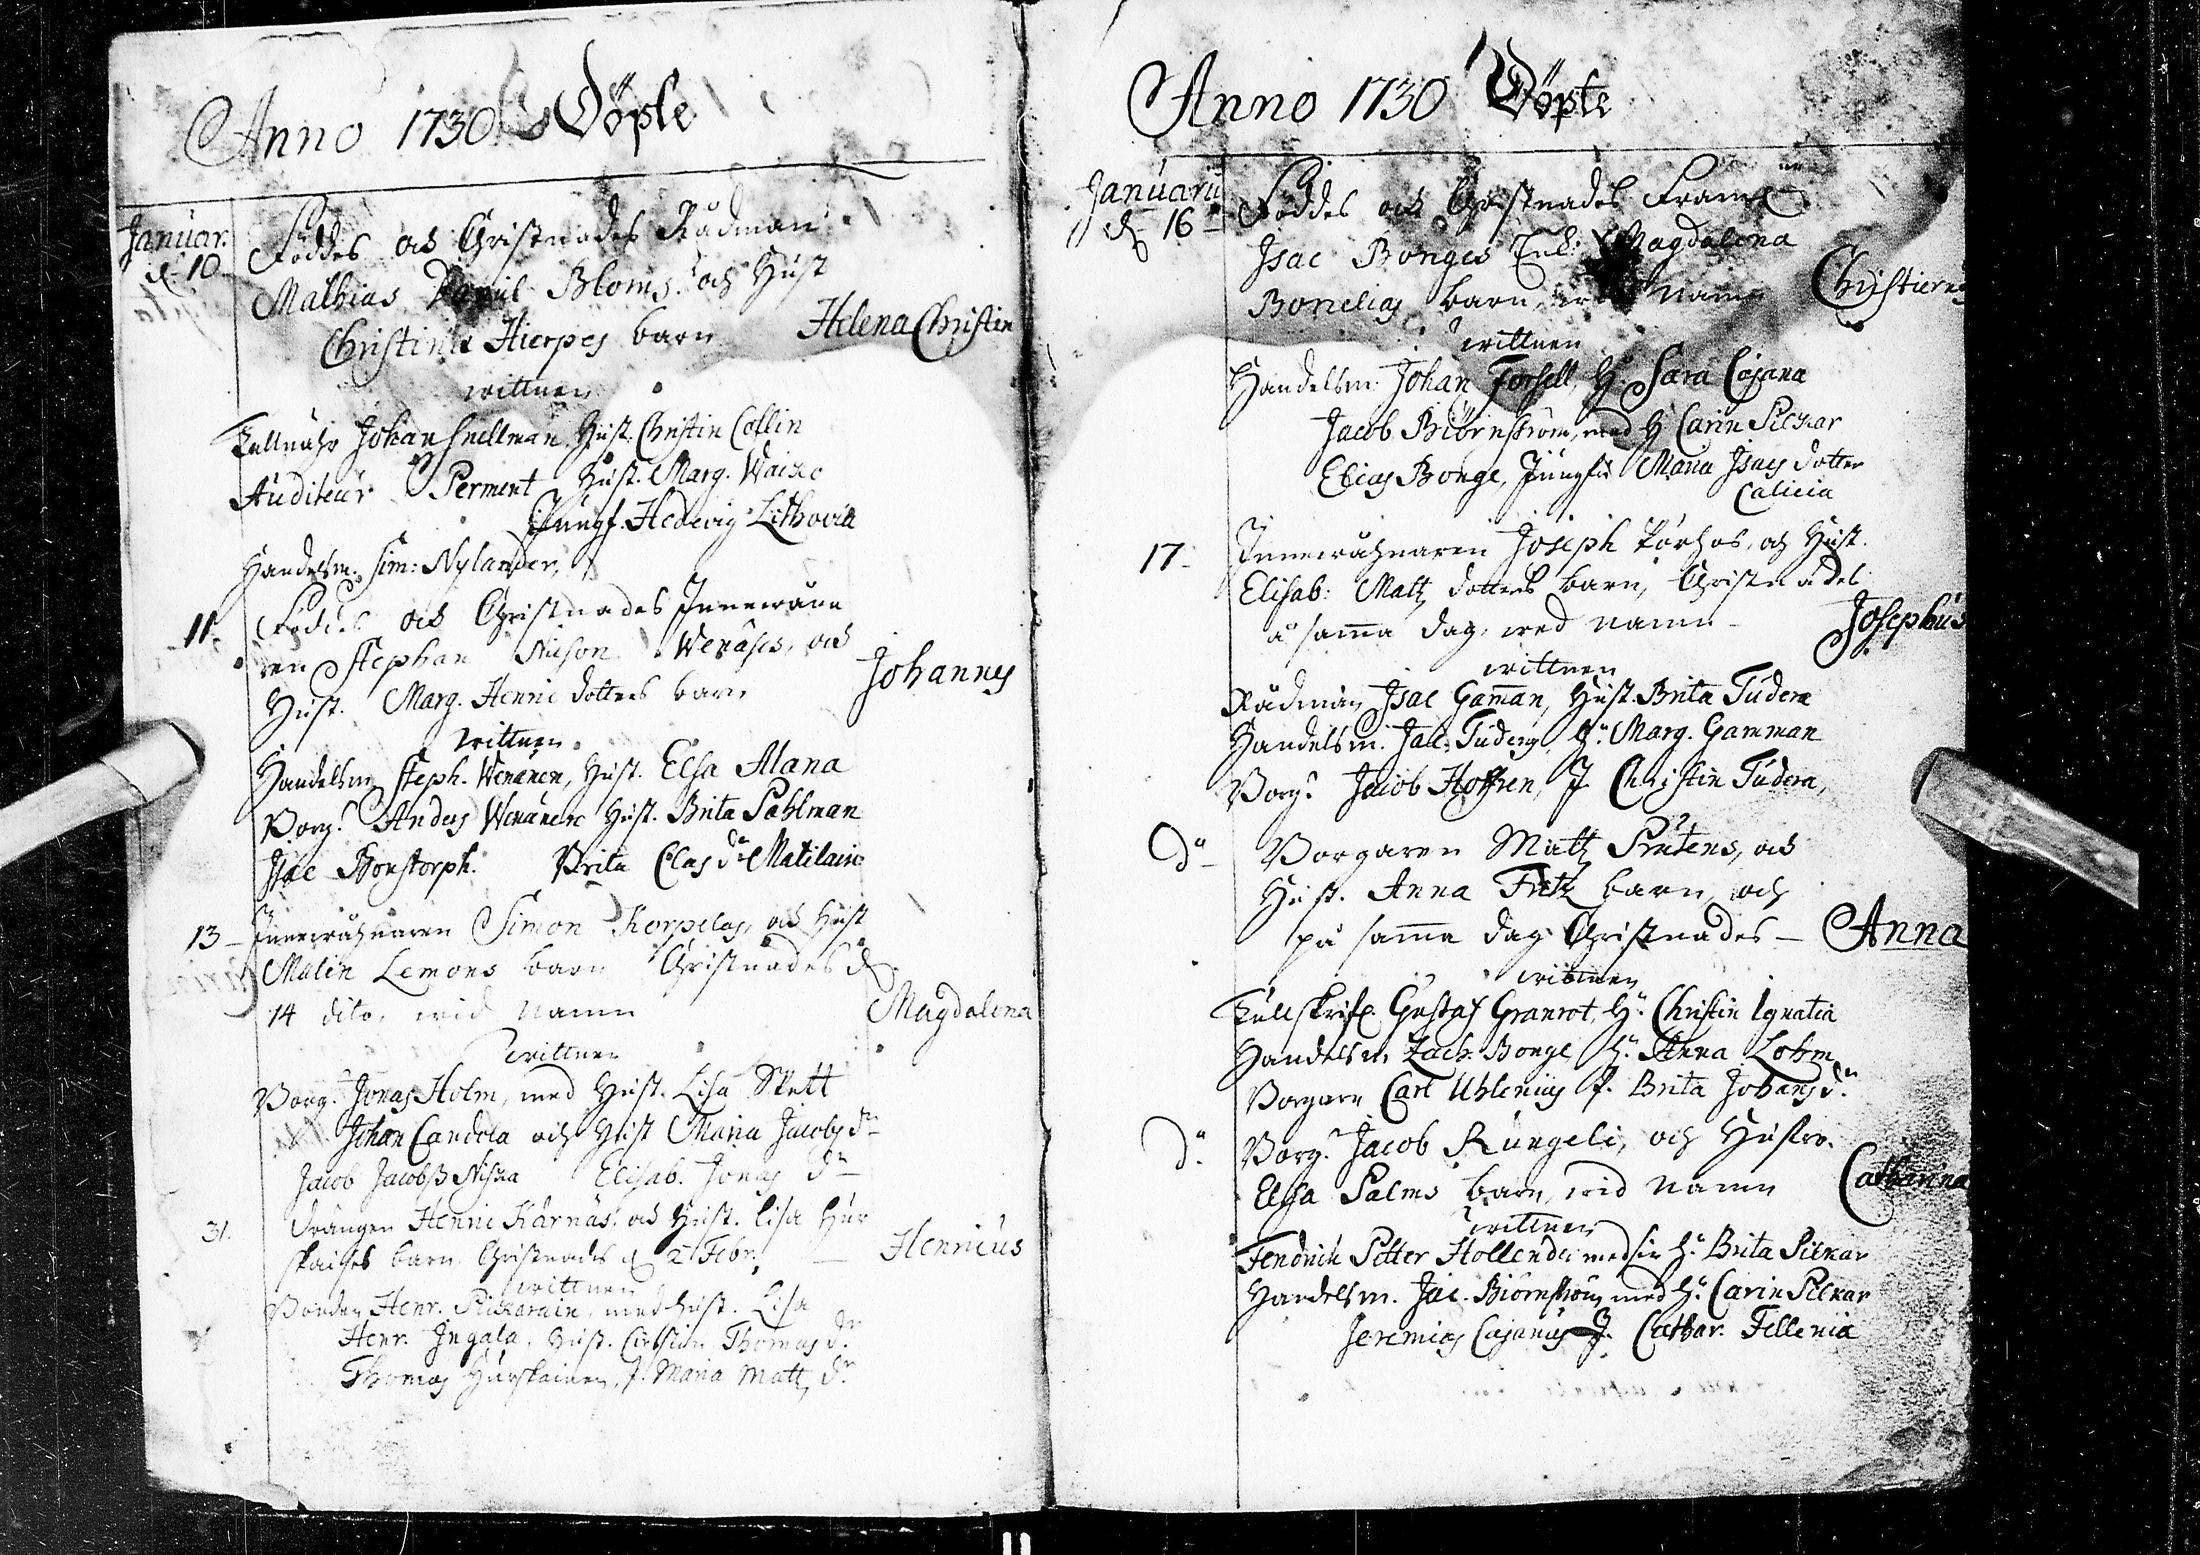 Anno 1730 Döpte
Januar.
d. 10
Föddes och Christnades Rådman
Mathias Bloms och Hust
Christina Hierpes barn Helena Christin
wittnen
Johan Snellman Hust. Christin Collin
Auditeur Perment Hust. Marg.
Jungf. Hedevig Lithovia
Handelsm. Sim: Nylander,
11. och Christnades Innewåna
ren Stephan och
Hust. Marg. Henric dotters barn Johannes
wittnen
Handelsm. Steph. Wenänen, Hust. Elsa Alana
Borg. Anders Hust. Brita Pahlman
Isac Brita Clas dr
13 - Simon Korpelas, och Hust
Malin Lemons barn Christnades d.
14 dito, wid namn Magdalena
wittnen
Borg. Jonas Holm, med Hust. Lisa
Johan och Hust Maria Jacobs dr
Jacob Elisab. Jonas dr
31. Drängen Henric Kärnäs och Hust. Lisa Hur
skaises barn Christnades d 2 Febr. Henricus
wittnen
Henr. med hust. Lisa
Henr. Ingala, Hust. Thomas dr
Thomas Hurskainen, J. Maria Matz dr
Anno 1730 Döpte
Januarii
d. 16 - Föddes och Christnades
Isac Bonges Magdalena
barn, namn
wittnen
Handelsm: Johan Forsell, H. Sara Cajana
Jacob Biörnström, med H Carin Silkar
Elias Bonge, Jungfr Maria Isacs dotter
Calicia
17 - Joseph och Hust.
Elisab: Matz dotters barn, Christnades
samma dag, wed namn - Josephus
wittnen
Rådman Isac Gamman, Hust. Brita Tudera
Handelsm. Jac. H. Marg. Gamman
Borg. Jacob Hoffren, J Christin Tudera,
do - Borgaren Matz och
Hust. Anna barn, och
på samma dag Christnades - Anna
wittnen
Gustaf Granrot, H. Christin Ignatia
Handelsm Zach. Bonge H. Anna Lohm
Borgarn Carl Uhlenius J. Brita Johans dr.
do. Borg. Jacob Rungeli, och Hustro.
Elsa Palms barn, wid namn Catharina
wittnen
Fendrich Petter Hollender med sin H. Brita Silkar
Handelsm. Jac. Biörnström med H. Carin Silkar
Jeremias Cajanus J. Cathar. Fellenia